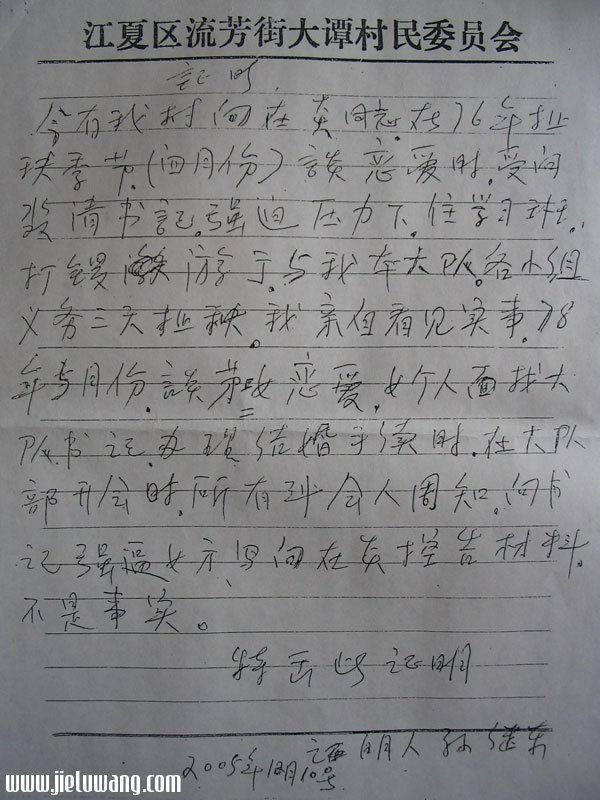 江夏区流芳街大谭村民委员会
证明
今有我村向在炎同志.在76年扯
秧季节.(四月份)談恋爱时.受向
清书記.强迫压力下.住学习班.
打锣游于.与我本大队.各小组
义务三天扯秧。我亲自看见实事.78
年5月份.談第二女恋爱.女个人面找大
队书记.办理结婚手续时.在大队
部开会时.所有到会人周知.向书
记强逼女方写向在炎控告材料.
不是事实。
特此证明
证明人孙继东
2005年12月10号
www.jieluwang.com